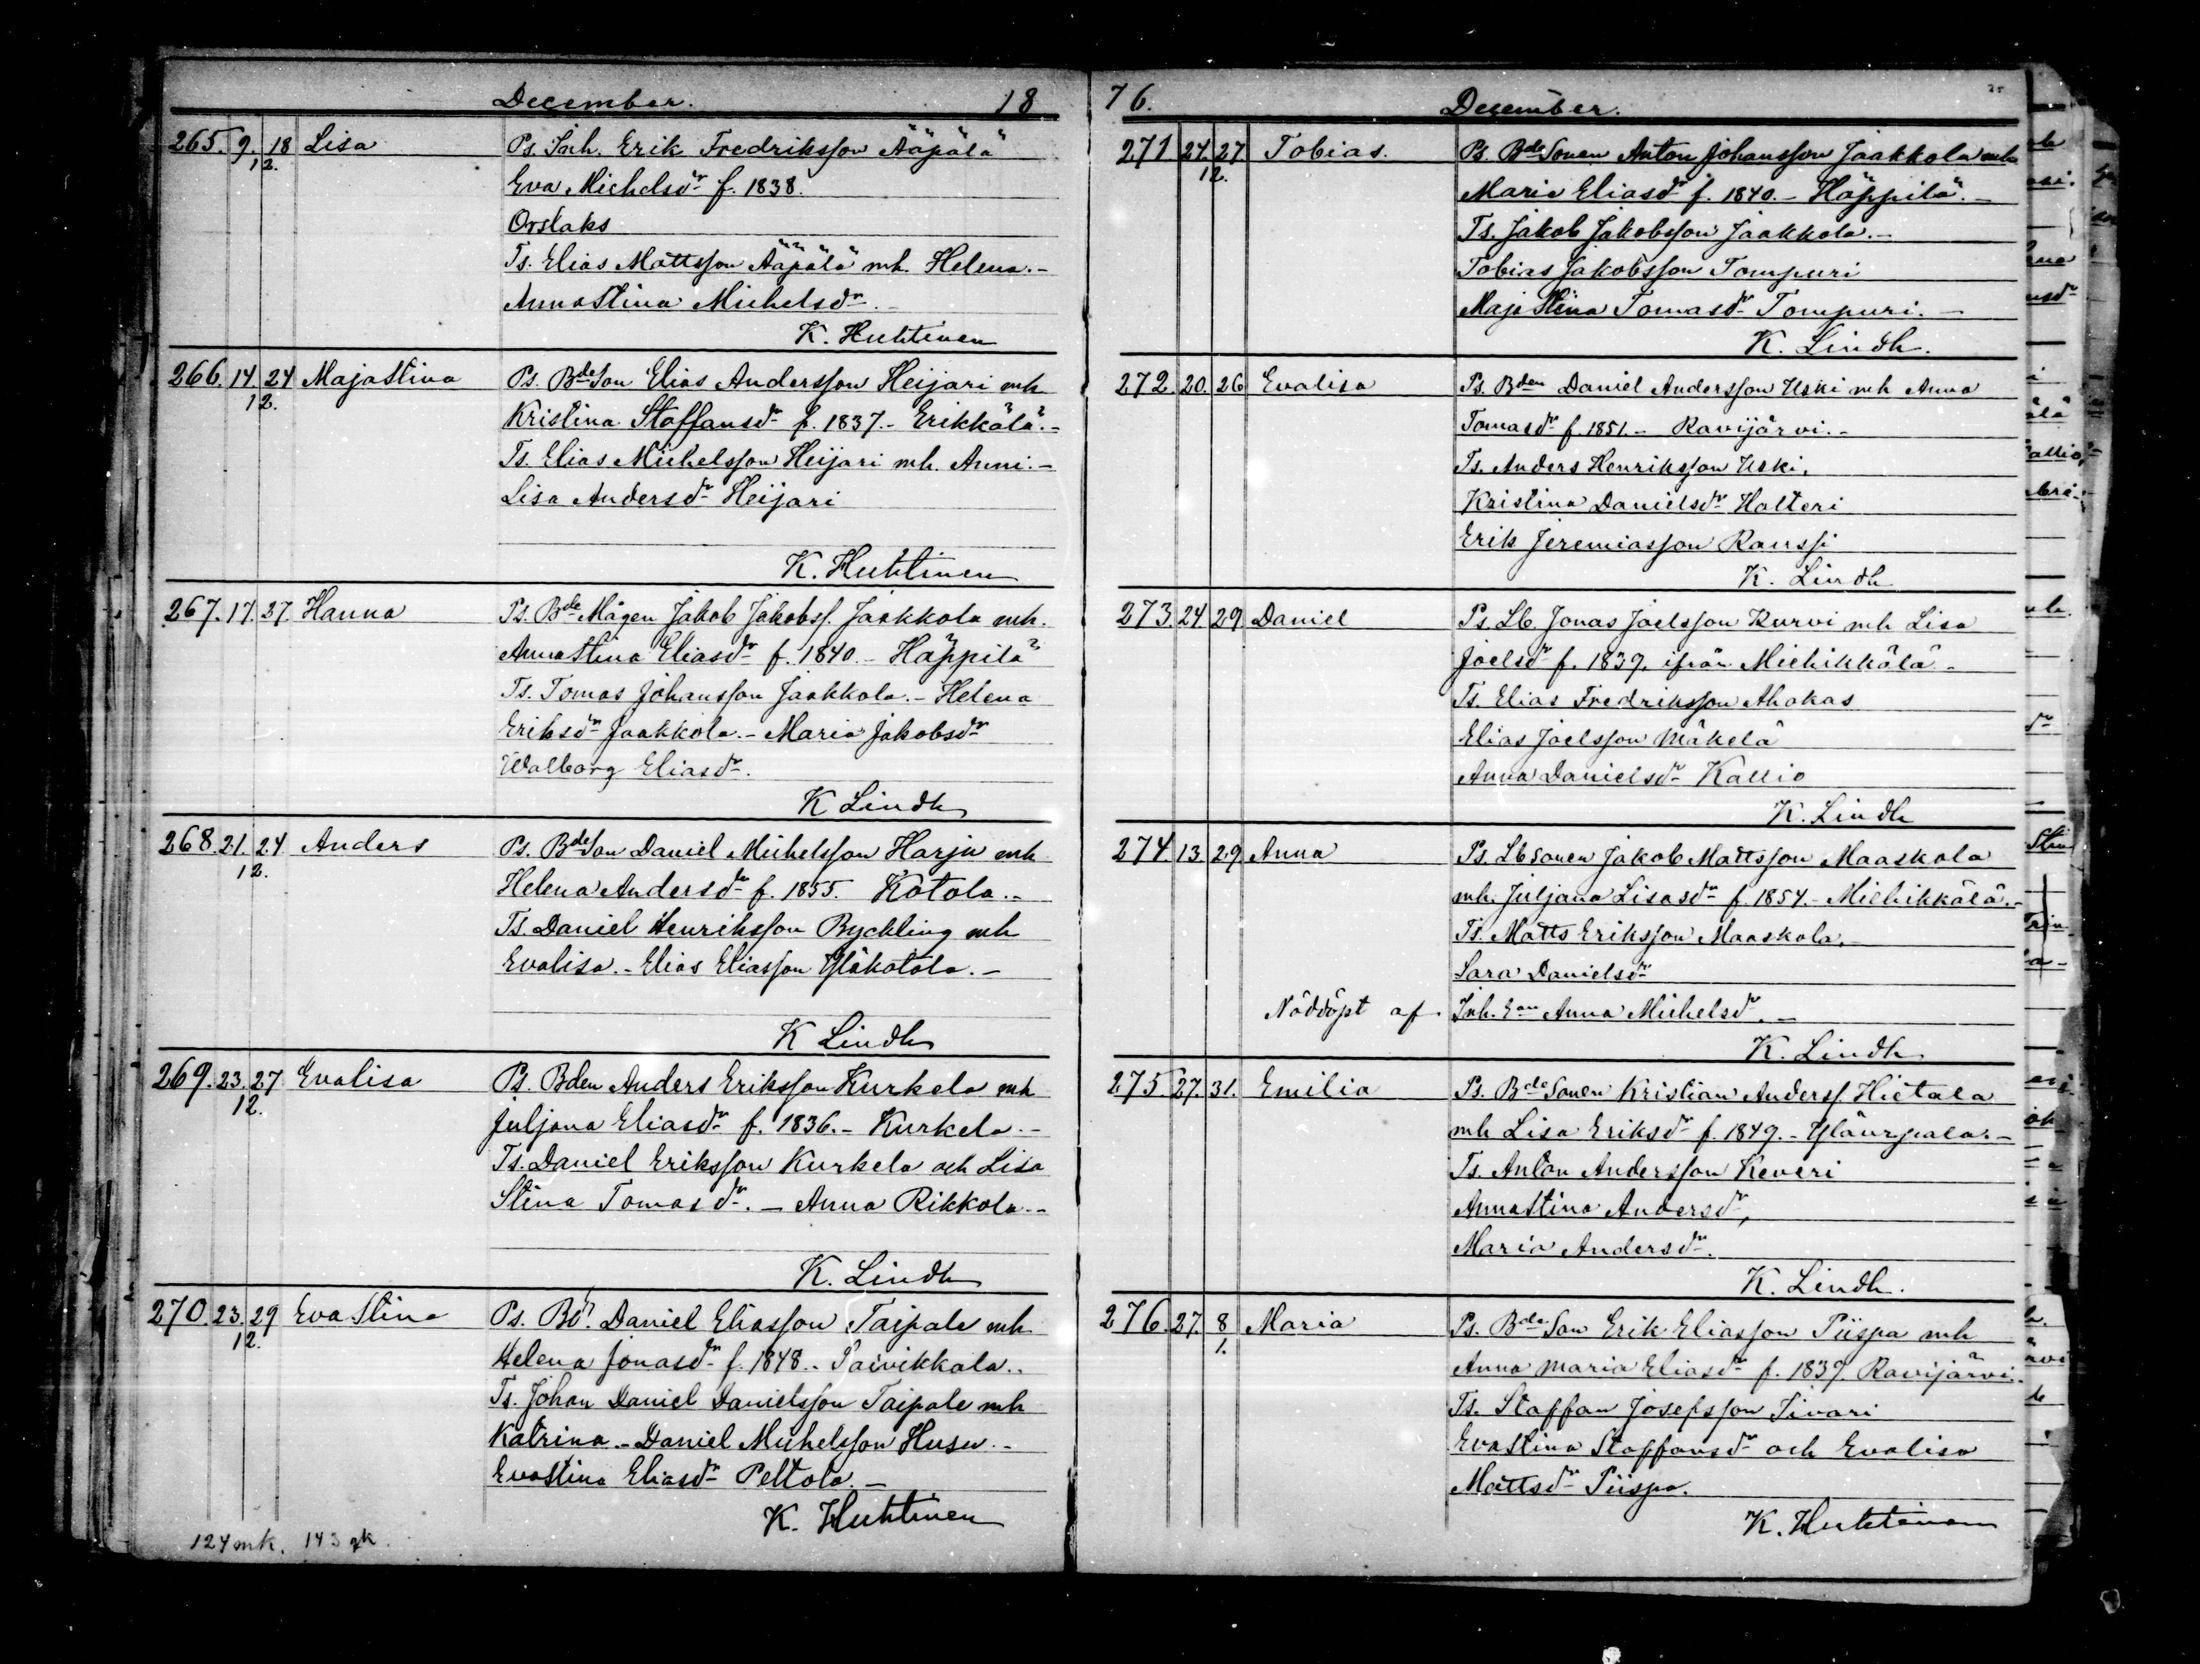 December. 18
265. 9. 18 Lisa Ps. Inh. Erik Fredriksson Ääpälä
12. Eva Michelsdr f. 1838.
Orslaks
Ts. Elias Mattsson Ääpälä mh. Helena.-
AnnaStina Michelsdr.-
K. Huhtinen
266. 14. 24 MajaStina Ps. BdeSon Elias Andersson Heijari mh
12. Kristina Staffansdr f. 1837.- Erikkälä.-
Ts. Elias Michelsson Heijari mh. Anni.-
Lisa Andersdr Heijari
K. Huhtinen
267. 17. 27. Hanna Ps. Bde Mågen Jakob Jakobss. Jaakkola mh.
AnnaStina Eliasdr f. 1840.- Häppilä
Ts. Tomas Johansson Jaakkola.- Helena
Eriksdr Jaakkola.- Maria Jakobsdr
Walborg Eliasdr.
K Lindh
268. 21. 24 Anders Ps. BdeSon Daniel Michelsson Harju mh
12. Helena Andersdr f. 1855. Kotola.-
Ts. Daniel Henriksson Ryckling mh
Evalisa.- Elias Eliasson Yläkotola.-
K Lindh
269. 23. 27 Evalisa Ps. Bden Anders Eriksson Kurkela mh
12. Juljana Eliasdr f. 1836.- Kurkela.-
Ts. Daniel Eriksson Kurkela och Lisa
Stina Tomasdr.- Anna Rikkola.-
K. Lindh
270. 23. 29 EvaStina Ps. Bdn. Daniel Eliasson Taipale mh
12. Helena Jonasdr f. 1848.- Paivikkala.-
Ts. Johan Daniel Danielsson Taipale mh
Katrina.- Daniel Michelsson Husu.-
EvaStina Eliasdr Peltola.-
K. Huhtinen
124 mk. 143 qk.
76. December.
271 24. 27 Tobias. Ps. BdeSonen Anton Johansson Jaakkola mh
12. Maria Eliasdr f. 1840.- Häppilä.-
Ts. Jakob Jakobsson Jaakkola.-
Tobias Jakobsson Tompuri
MajaStina Tomasdr Tompuri.-
K. Lindh.
272. 20. 26 Evalisa Ps. Bden Daniel Andersson Uski mh Anna
Tomasdr f. 1851.- Ravijärvi.-
Ts. Anders Henriksson Uski,
Kristina Danielsdr Halteri
Erik Jeremiasson Ranssi
K. Lindh
273. 24. 29. Daniel Ps. Lb. Jonas Joelsson Kurvi mh Lisa
Joelsdr f. 1839. ifrån Miehikkälä-
Ts. Elias Fredriksson Ahokas
Elias Joelsson Mäkelä
Anna Danielsdr Kallio
K. Lindh
274 13 29 Anna Ps. Lbsonen Jakob Mattsson Maaskola
mh. Juljana Lisasdr f. 1854.- Miehikkälä.-
Ts. Matts Eriksson Maaskola,-
Sara Danielsdr
Nöddöpt af Inh. Ean Anna Michelsdr.-
K. Lindh
275. 27. 31. Emilia Ps. BdeSonen Kristian Anderss. Hietala
mh Lisa Eriksdr f. 1849.- Yläurpala.-
Ts. Anton Andersson Keveri
AnnaStina Andersdr,
Maria Andersdr.
K. Lindh.
276. 27. 8 Maria Ps. BdeSon Erik Eliasson Piispa mh
1. Anna Maria Eliasdr f. 1839. Ravijärvi.-
Ts. Staffan Josefsson Sivari
EvaStina Staffansdr och Evalisa
Mattsdr Piispa.
K. Huhtinen